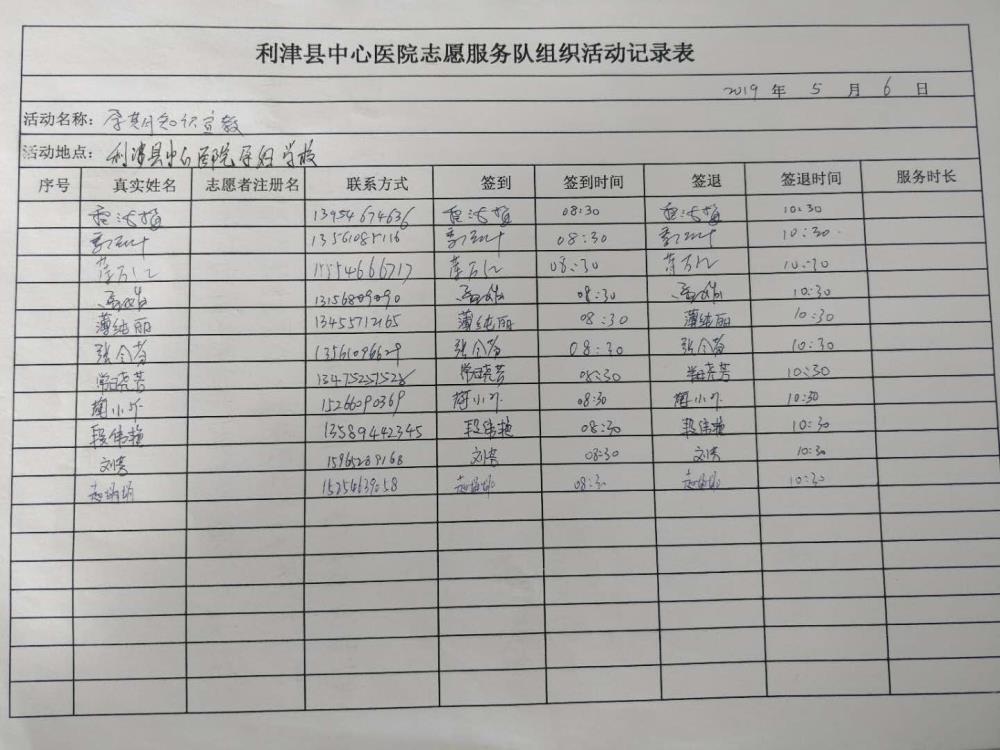 利津县中心医院志愿服务队组织活动记录表
2019 年 5 月 6 日
活动名称：孕期知识宣教
活动地点：利津县中心医院孕妇学校
序号 真实姓名 志愿者注册名 联系方式 签到 签到时间 签退 签退时间 服务时长
13954674636 08:30 10:30
13561085116 08:30 10:30
08:30 10:30
13156809090 08:30 10:30
薄纯丽 13455712165 薄纯丽 08:30 薄纯丽 10:30
张令芳 13561096629 张令芳 08:30 张令芳 10:30
常晓芳 13475257528 常晓芳 08:30 常晓芳 10:30
15266090369 08:30 10:30
段伟艳 13589442345 段伟艳 08:30 段伟艳 10:30
刘芳 15965289168 刘芳 08:30 刘芳 10:30
赵娟娟 15254639058 赵娟娟 08:30 赵娟娟 10:30